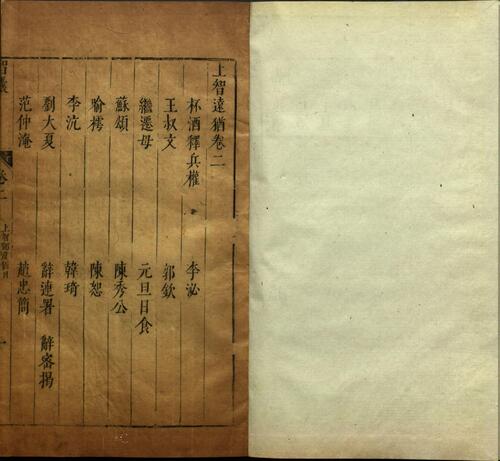 上智遠猶卷二
杯酒釋兵權 李泌
王叔文 郭欽
繼遷母 元旦日食
蘇頌 陳秀公
喻樗 陳恕
李沆 韓琦
劉大夏 辭連署 辭密揭
范仲淹 趙忠簡
智囊 卷二 一